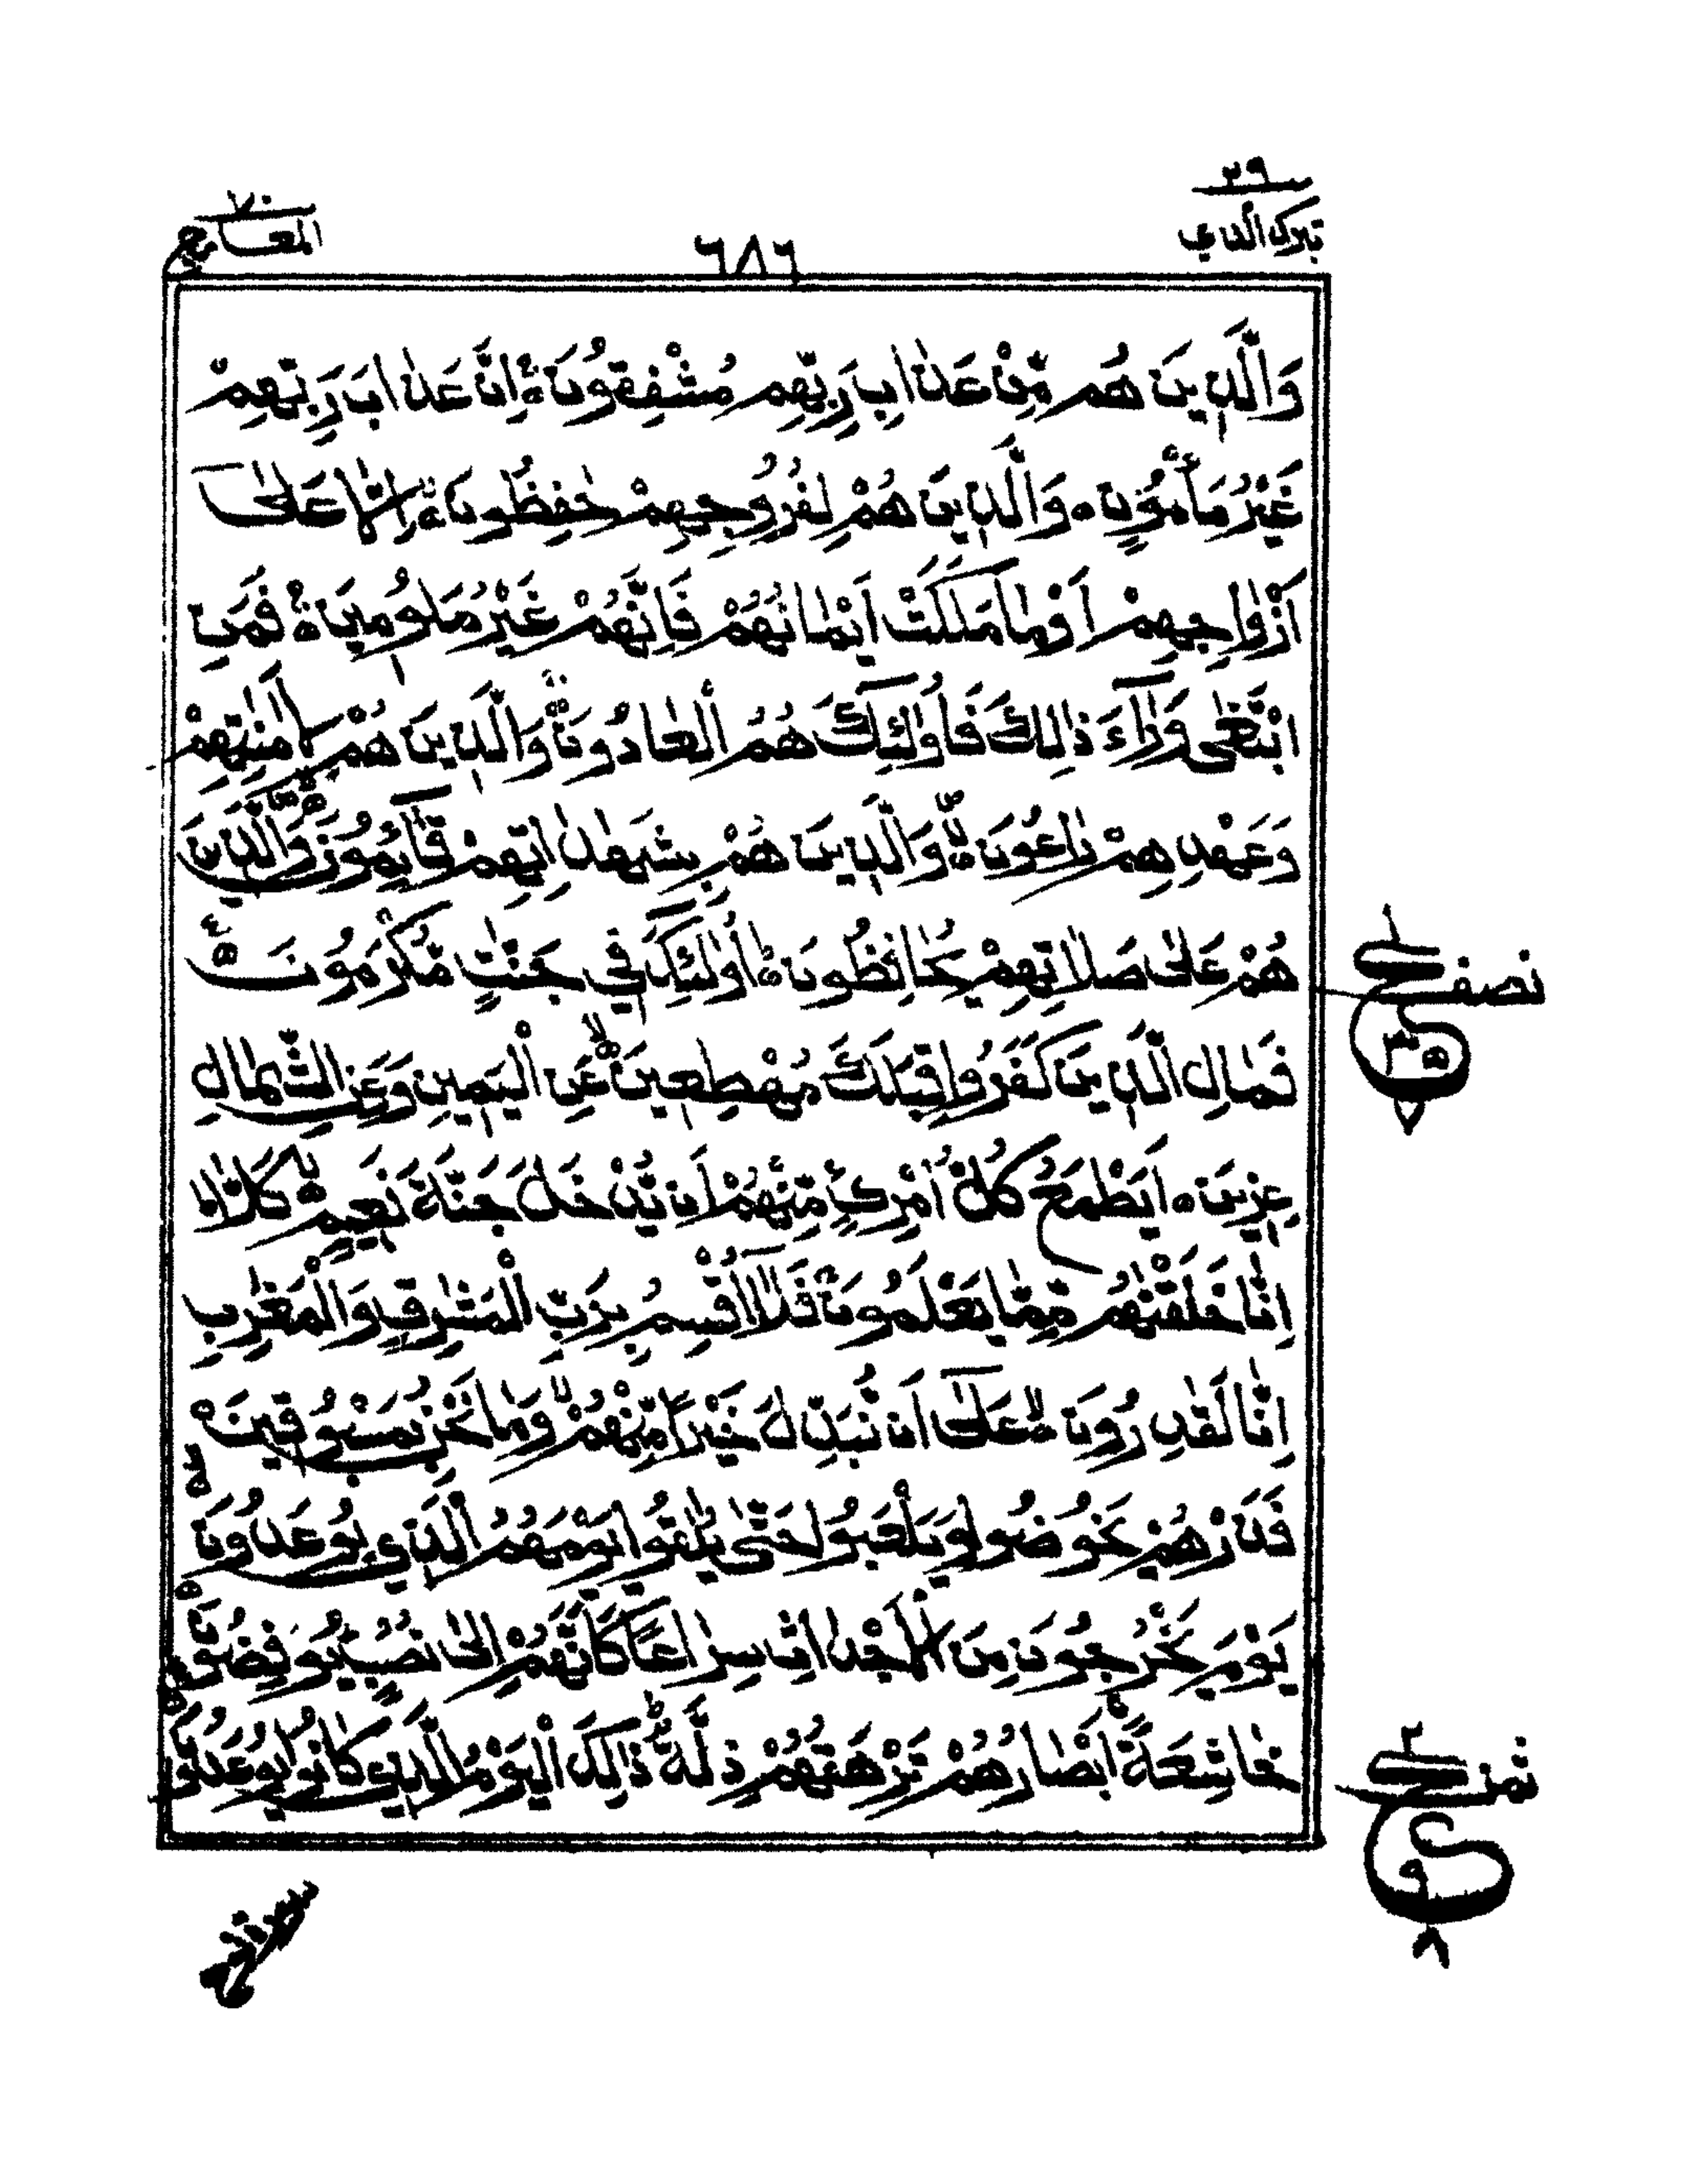 ٢٩
تبرك الذي
٦٨٦
٧٠
المعارج
وَالَّذِينَ هُم مِّنْ عَذَابِ رَبِّهِم مُّشْفِقُونَ ۝ إِنَّ عَذَابَ رَبِّهِمْ
غَيْرُ مَأْمُونٍ ۝ وَالَّذِينَ هُمْ لِفُرُوجِهِمْ حٰفِظُونَ ۝ إِلَّا عَلَىٰ
أَزْوٰاجِهِمْ أَوْ مٰا مَلَكَتْ أَيْمٰانُهُمْ فَإِنَّهُمْ غَيْرُ مَلُومِينَ ۝ فَمَنِ
ابْتَغٰى وَرٰآءَ ذٰلِكَ فَأُولٰٓئِكَ هُمُ الْعٰادُونَ ۝ وَالَّذِينَ هُمْ لِأَمٰنٰتِهِمْ
وَعَهْدِهِمْ رٰاعُونَ ۝ وَالَّذِينَ هُمْ بِشَهٰدٰاتِهِمْ قَآئِمُونَ ۝ وَالَّذِينَ
هُمْ عَلٰى صَلاٰتِهِمْ يُحٰافِظُونَ ۝ أُولٰٓئِكَ فِي جَنّٰتٍ مُّكْرَمُونَ ۝
نصف
فَمٰالِ الَّذِينَ كَفَرُوا قِبَلَكَ مُهْطِعِينَ ۝ عَنِ الْيَمِينِ وَعَنِ الشِّمٰالِ
عِزِينَ ۝ أَيَطْمَعُ كُلُّ امْرِئٍ مِّنْهُمْ أَن يُّدْخَلَ جَنَّةَ نَعِيمٍ ۝ كَلَّا
إِنّٰا خَلَقْنٰهُم مِّمّٰا يَعْلَمُونَ ۝ فَلَآ أُقْسِمُ بِرَبِّ الْمَشٰرِقِ وَالْمَغٰرِبِ
إِنّٰا لَقٰدِرُونَ ۝ عَلٰىٓ أَن نُّبَدِّلَ خَيْرًا مِّنْهُمْ وَمٰا نَحْنُ بِمَسْبُوقِينَ ۝
فَذَرْهُمْ يَخُوضُوا وَيَلْعَبُوا حَتّٰى يُلٰقُوا يَوْمَهُمُ الَّذِي يُوعَدُونَ ۝
يَوْمَ يَخْرُجُونَ مِنَ الْأَجْدٰاثِ سِرٰاعًا كَأَنَّهُمْ إِلٰى نُصُبٍ يُوفِضُونَ ۝
خٰاشِعَةً أَبْصٰارُهُمْ تَرْهَقُهُمْ ذِلَّةٌ ذٰلِكَ الْيَوْمُ الَّذِي كٰانُوا يُوعَدُونَ
ثمن